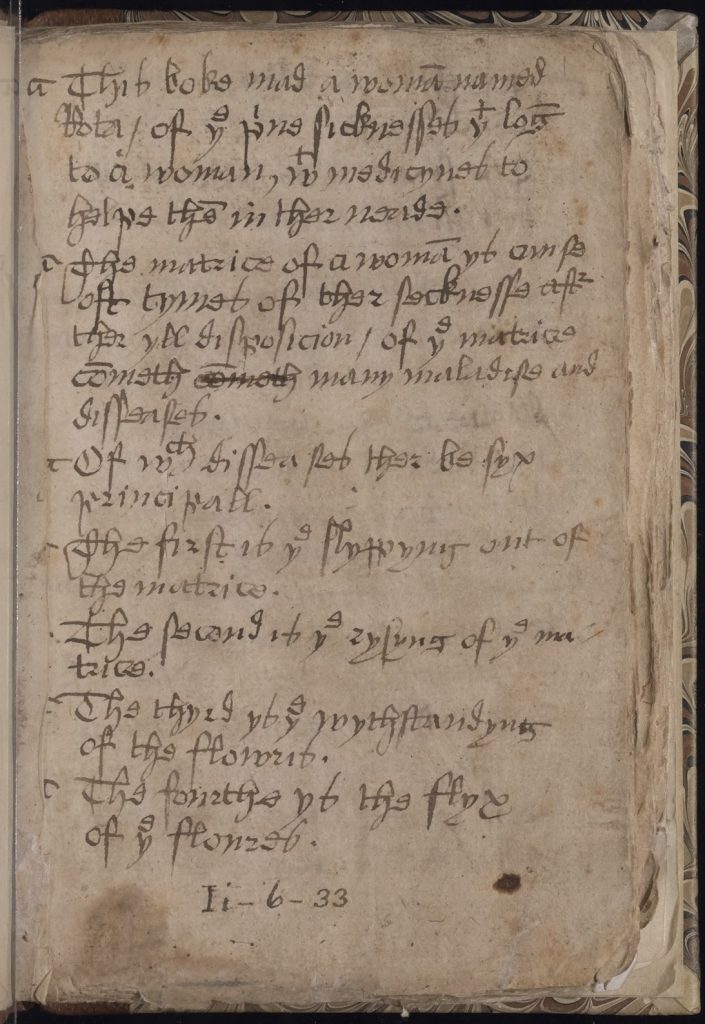 This boke mad a womā named
Rota / of yͤ p'ue sicknesses yͭ lōg
to a woman, wͭ medicynes to
helpe thē in ther neride.
The matrice of a womā ys cause
oft tymes of ther secknesse aftr
ther yll disposicion / of yͤ matrice
cōmeth cōmeth many maladise and
disseases.
Of wᶜʰ disseases ther be syx
principall.
The first is yͤ slyppyng out of
the matrice.
The second is yͤ rysyng of yͤ ma-
trice.
The thyrd ys yͤ wythstandyng
of the flowris.
The fourthe ys the flyx
of yͤ floures.
Ii-6-33